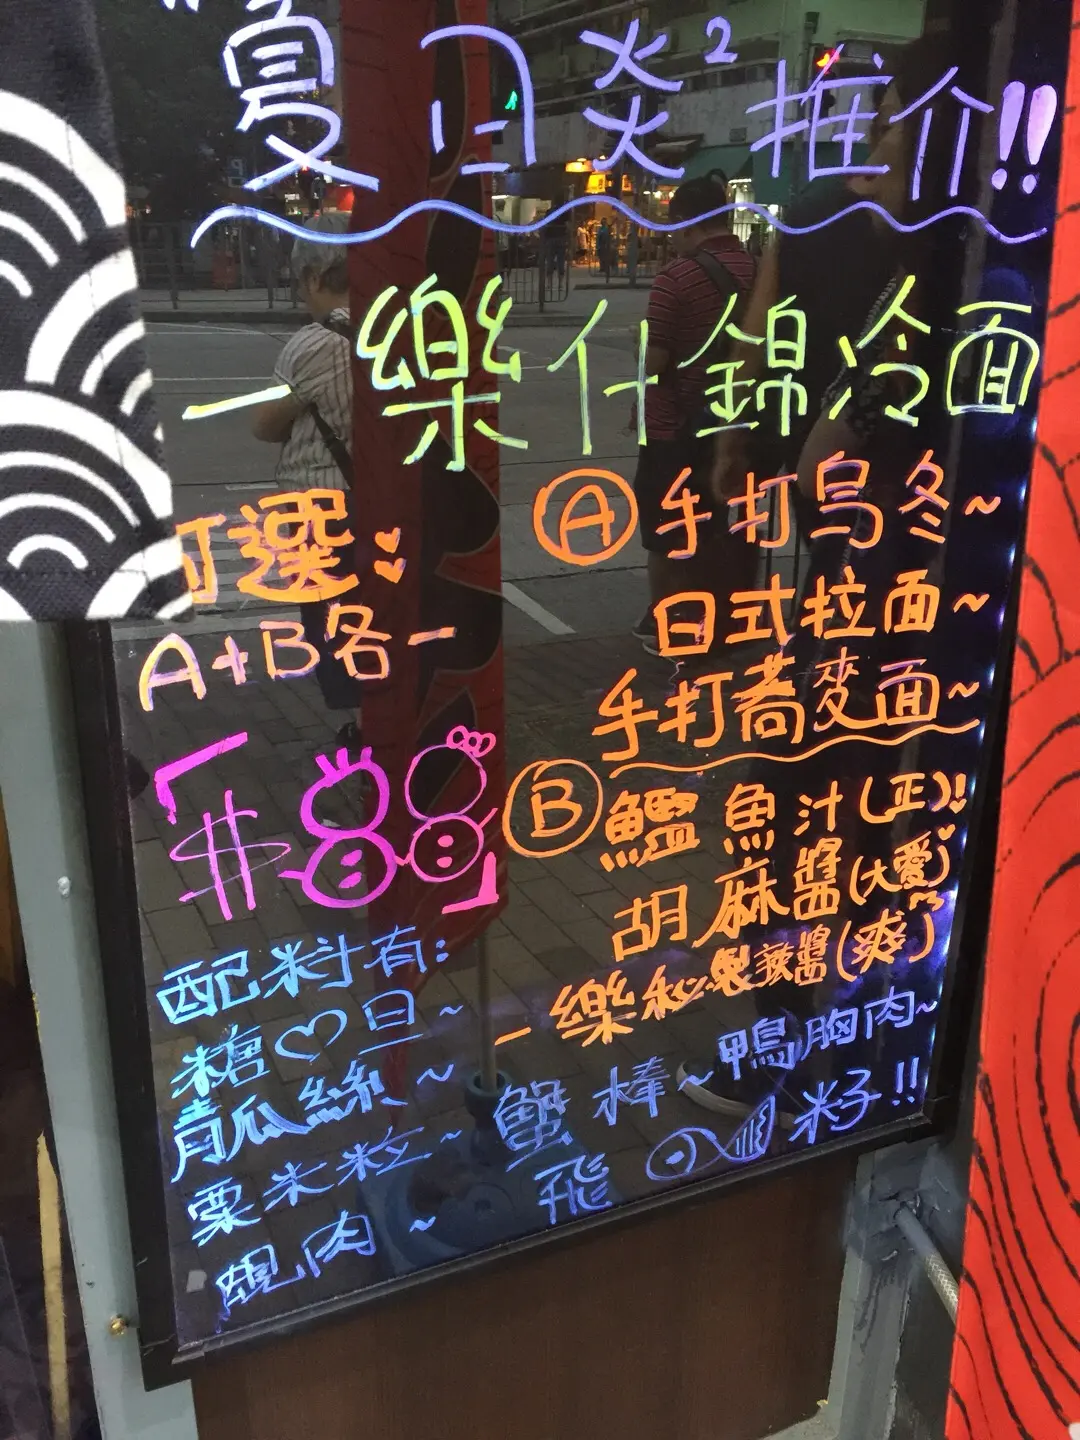 夏日炎²推介!!
一樂什錦冷面
可選:
A+B各一
$88
Ⓐ手打烏冬~
日式拉面~
手打蕎麥面~
Ⓑ鰻魚汁(正)!
胡麻醬(大愛)
一樂秘製辣醬(爽)
配料有:
糖♡旦~
青瓜絲~
粟米粒~
蜆肉~
蟹棒~鴨胸肉~
飛籽!!